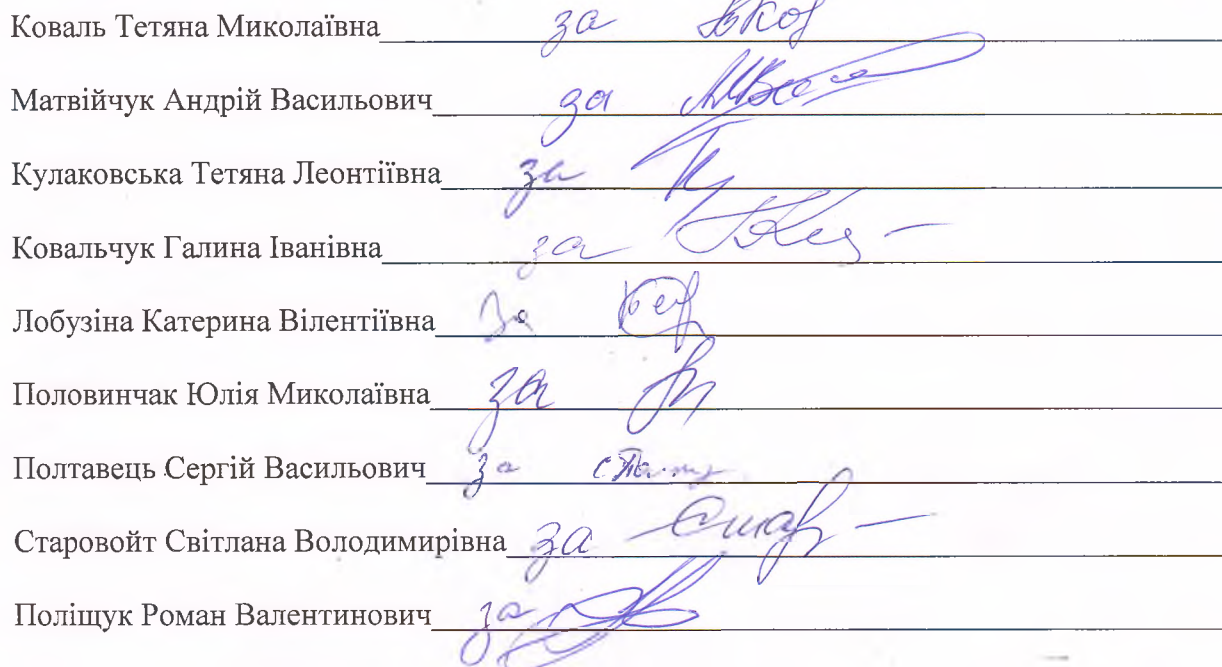 Коваль Тетяна Миколаївна за
Матвійчук Андрій Васильович за
Кулаковська Тетяна Леонтіївна за
Ковальчук Галина Іванівна за
Лобузіна Катерина Вілентіївна за
Половинчак Юлія Миколаївна за
Полтавець Сергій Васильович за
Старовойт Світлана Володимирівна за
Поліщук Роман Валентинович за